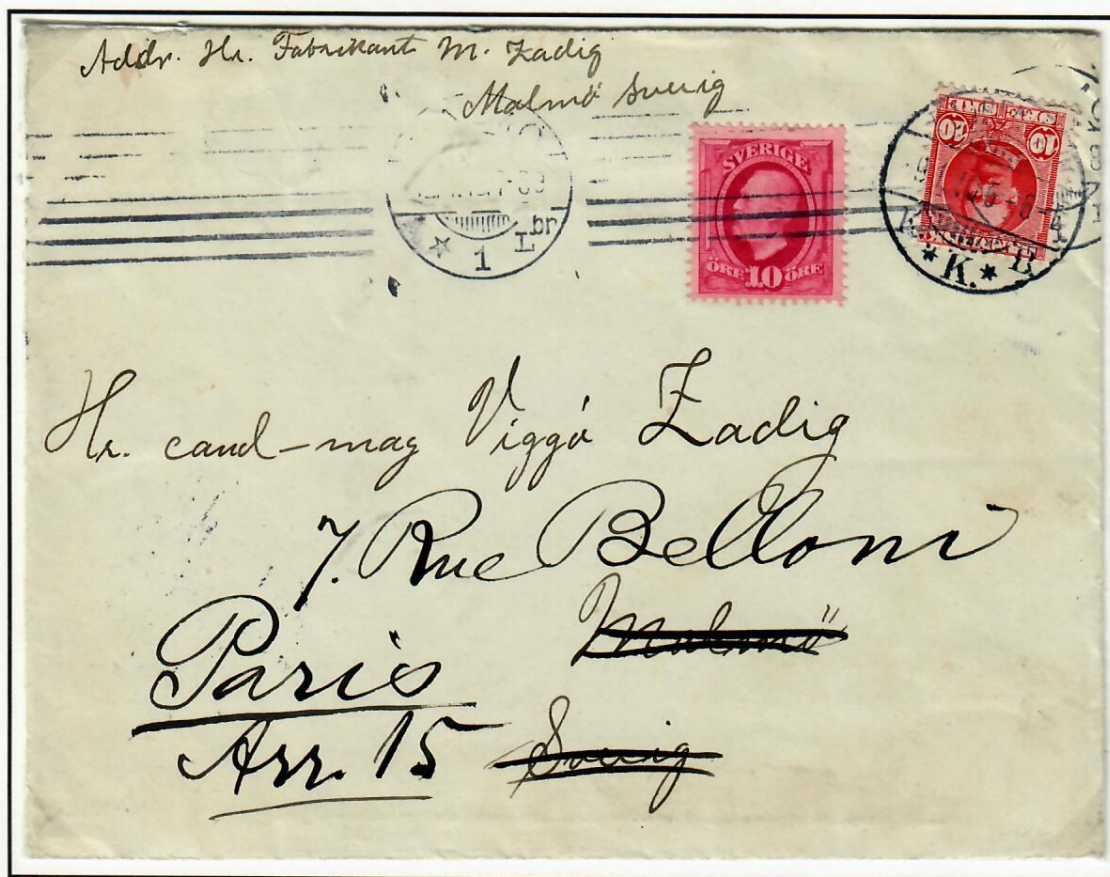 Addr. Hr. Fabrikant M. Zadig
Malmö Sverig
SVERIGE
ÖRE 10 ÖRE
10 10
1 Lbr
* K. * B
Hr. cand-mag Viggo Zadig
7. Rue Belloni
Malmö
Paris
Arr. 15
Sverig